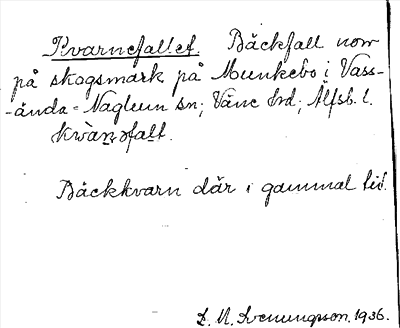 Kvarnefallet. Bäckfall nom
på skogsmark på Munkebo i Vass-
-ända-Naglum sn; Väne hd; Älfsb. l.
kvàṉəfaḻt.
Bäckkvarn där i gammal tid.
S. M. Svenungsson. 1936.